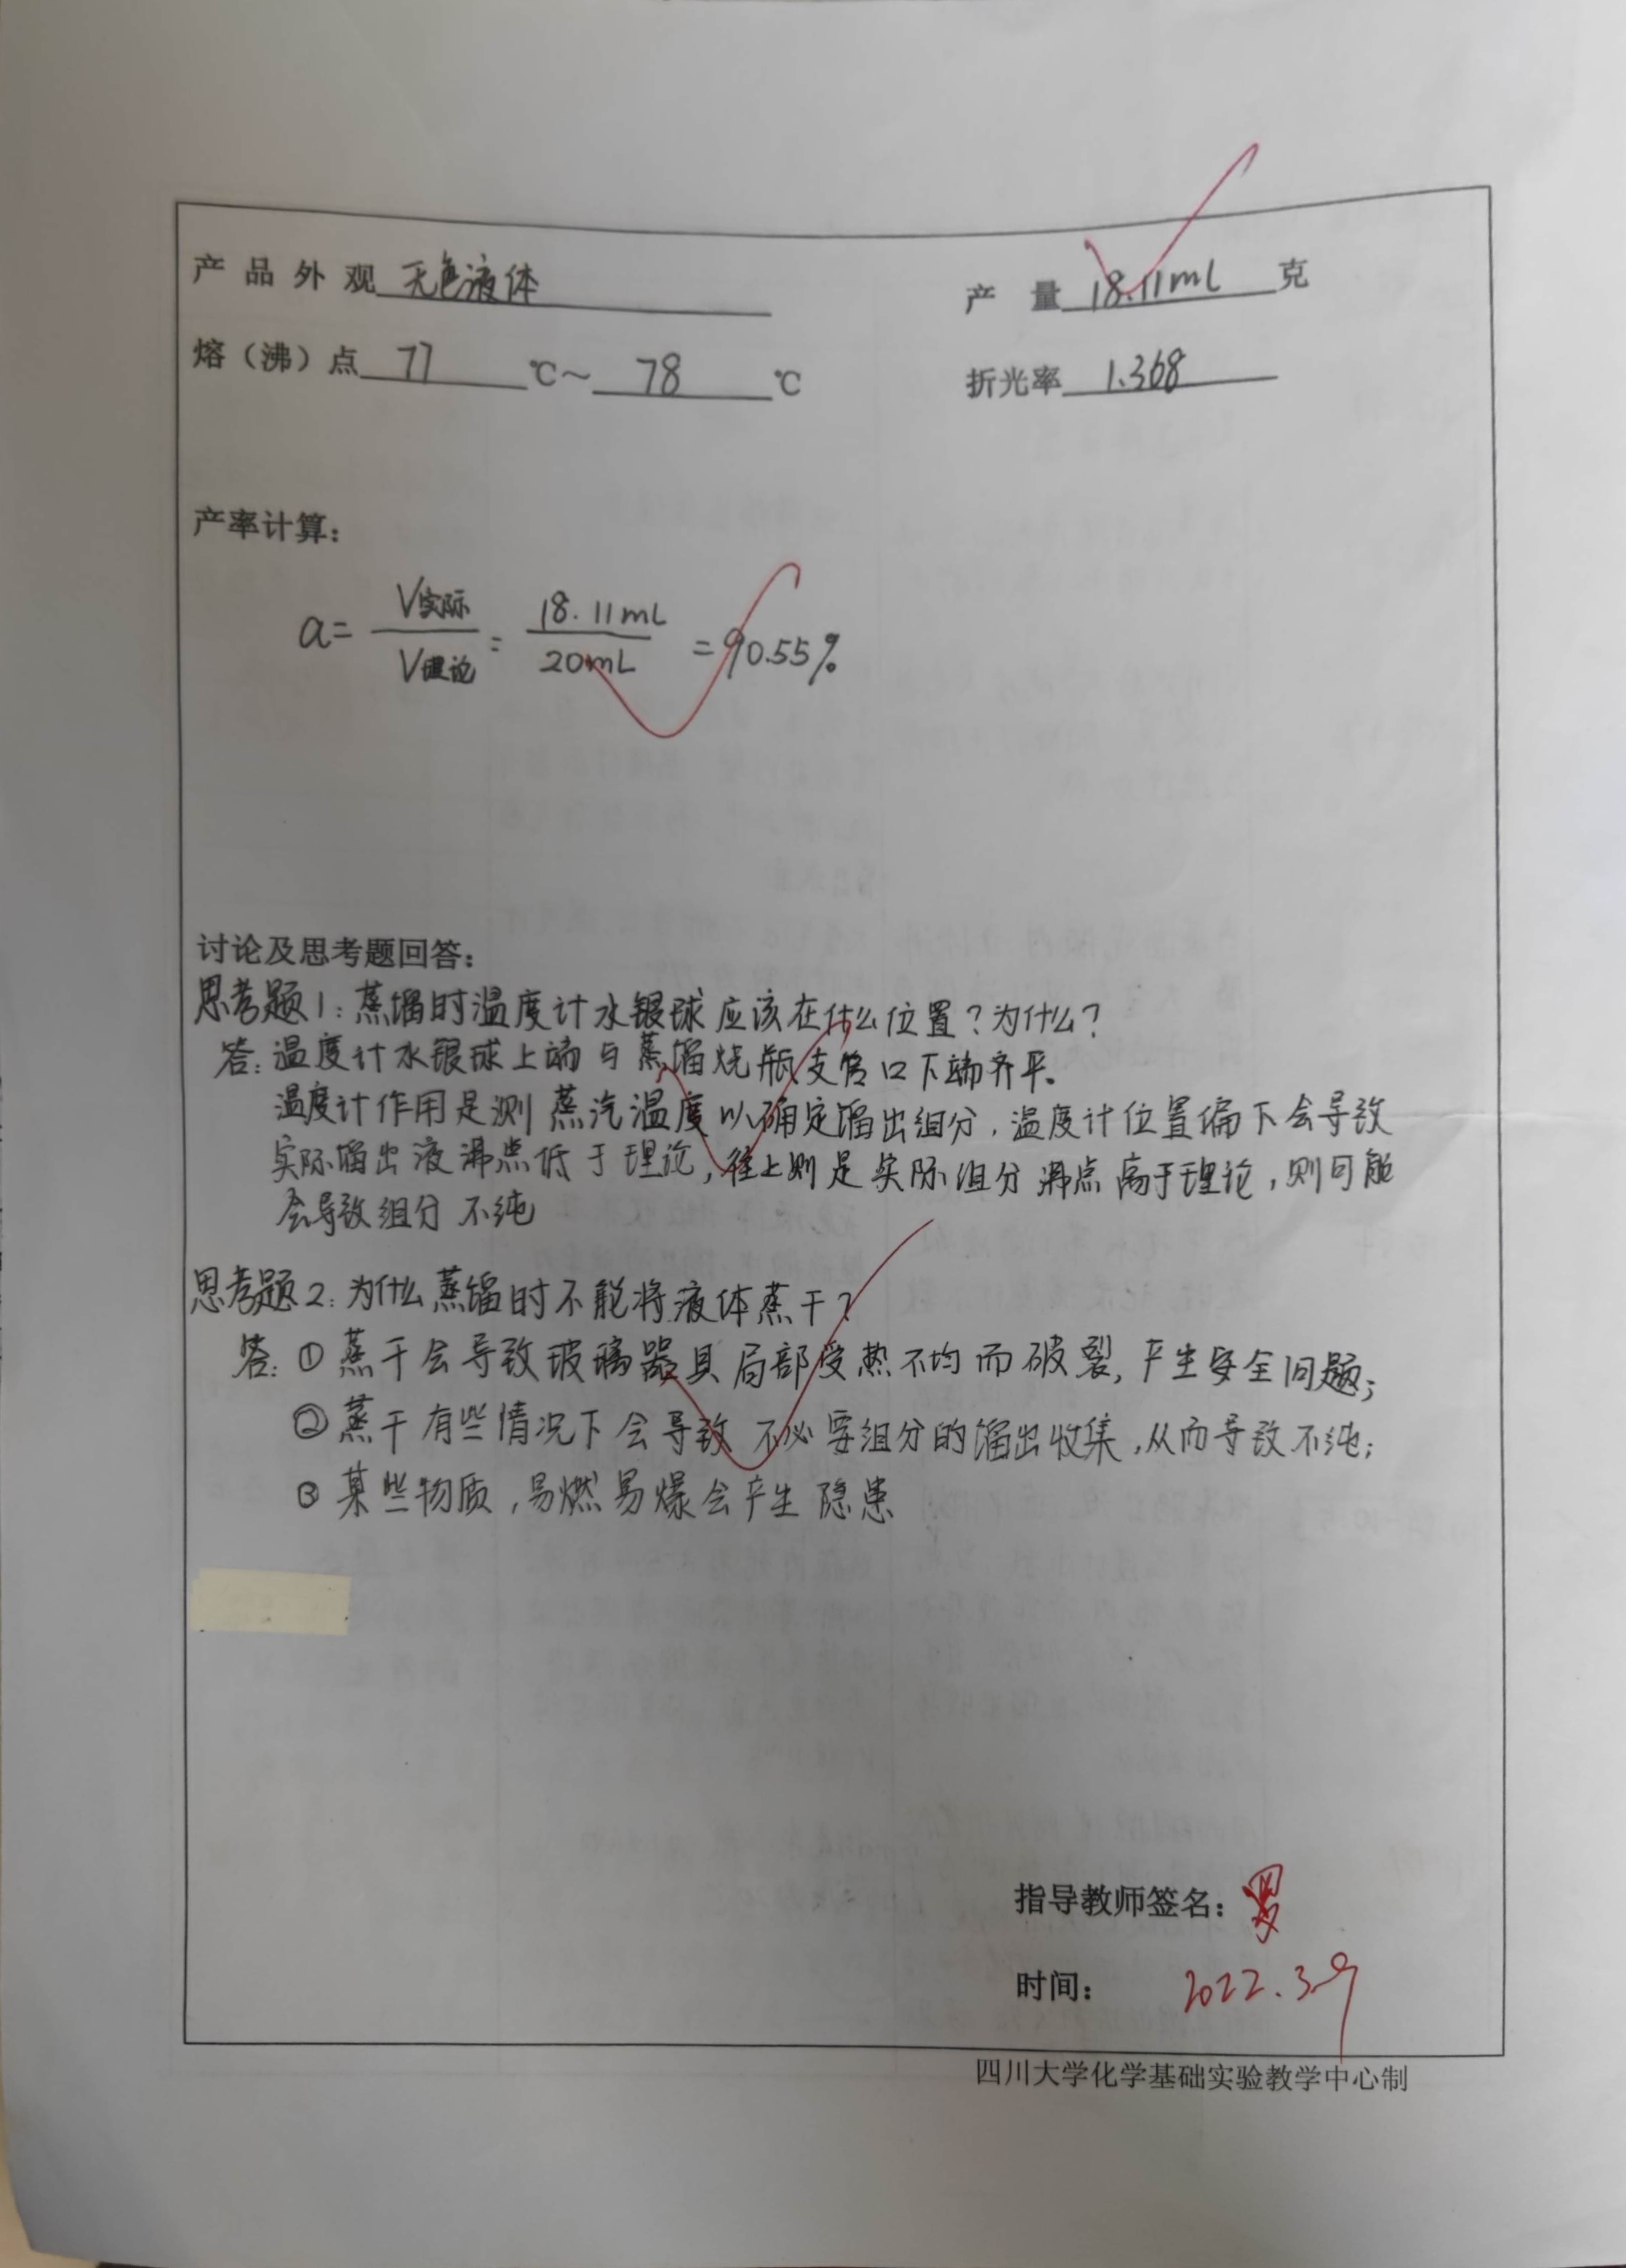 产品外观 无色液体 产量 18.11mL 克
熔（沸）点 77 ℃～ 78 ℃ 折光率 1.368
产率计算：
a= V实际/V理论 = 18.11mL/20mL = 90.55%
讨论及思考题回答：
思考题1：蒸馏时温度计水银球应该在什么位置？为什么？
答：温度计水银球上端与蒸馏烧瓶支管口下端齐平。
温度计作用是测蒸汽温度以确定馏出组分，温度计位置偏下会导致
实际馏出液沸点低于理论，往上则是实际组分沸点高于理论，则可能
会导致组分不纯
思考题2：为什么蒸馏时不能将液体蒸干？
答：①蒸干会导致玻璃器具局部受热不均而破裂，产生安全问题；
②蒸干有些情况下会导致不必要组分的馏出收集，从而导致不纯；
③某些物质，易燃易爆会产生隐患
指导教师签名：罗
时间： 2022.3.9
四川大学化学基础实验教学中心制